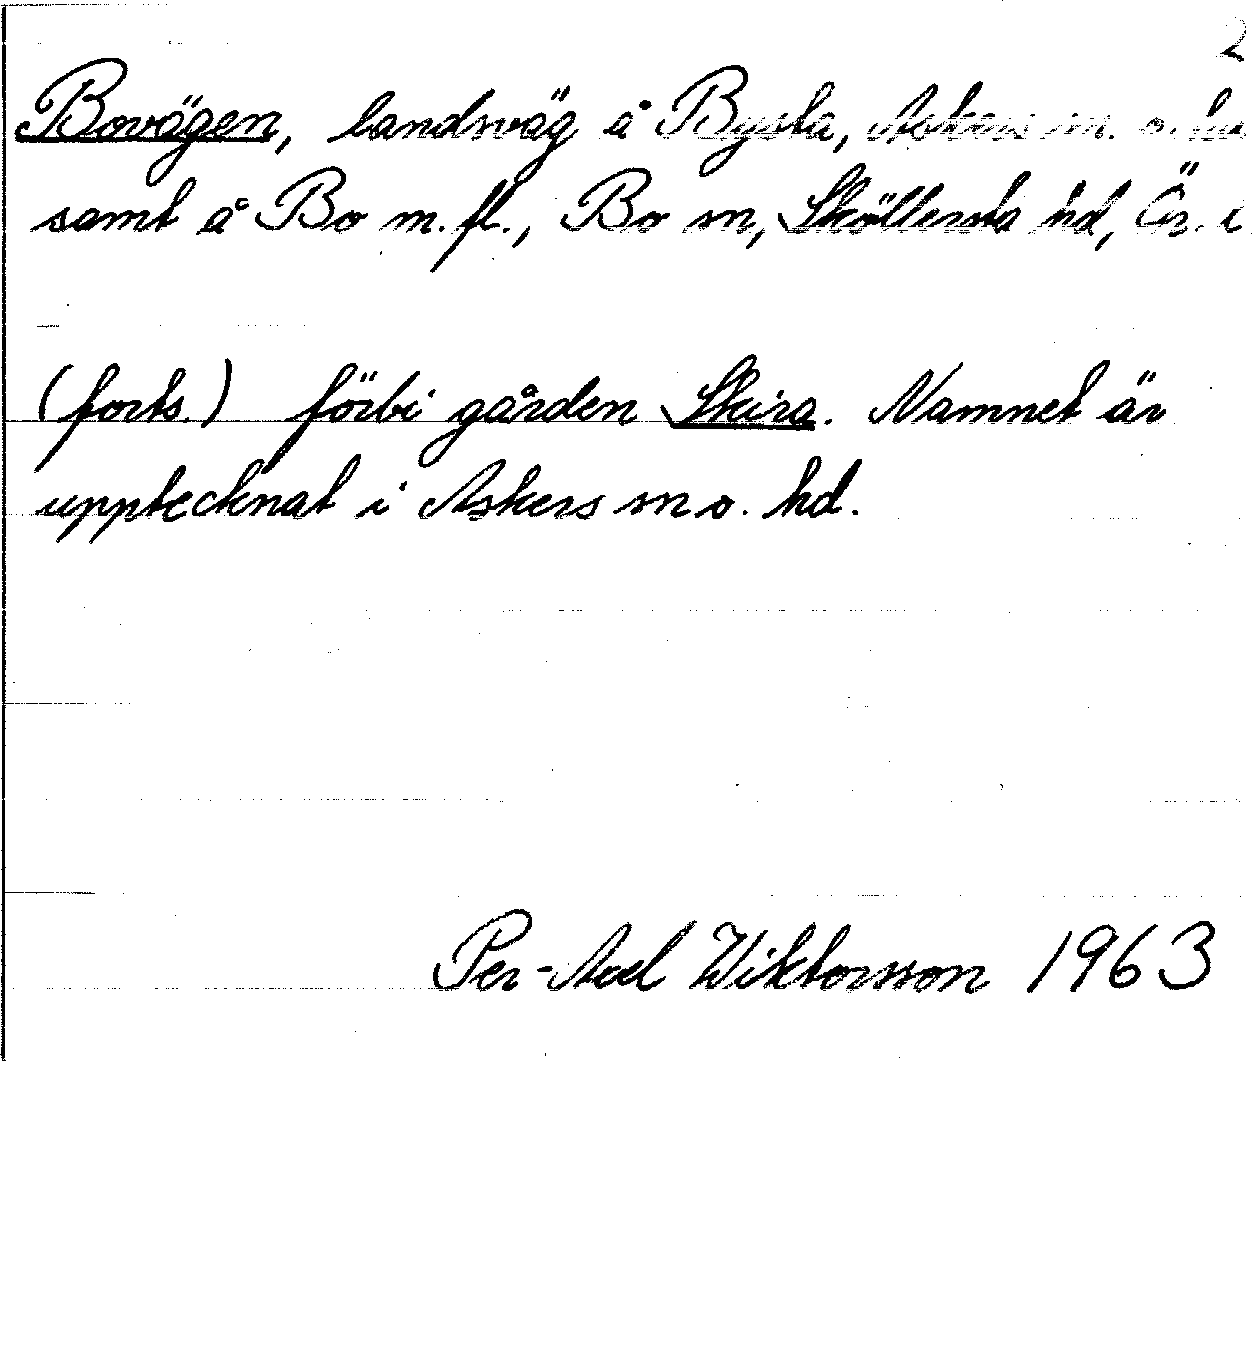 2
Bovägen, landsväg å Bysta, Askers sn. o. hd
samt å Bo m.fl., Bo sn, Sköllersta hd, Ör. l
(forts.) förbi gården Skira. Namnet är
upptecknat i Askers sn o. hd.
Per-Axel Wiktorsson 1963